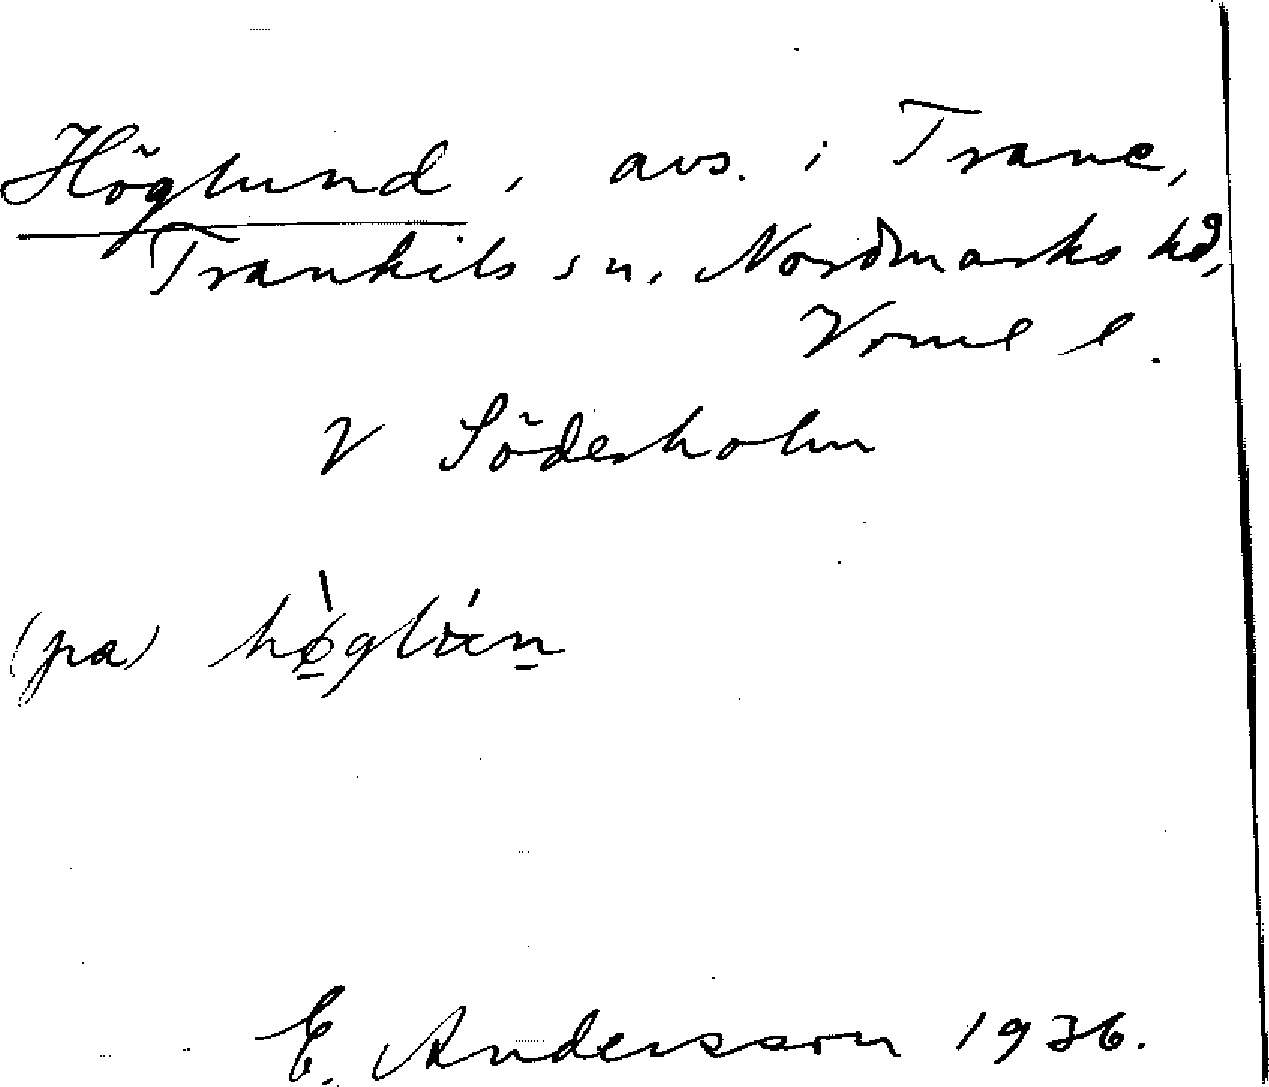 Höglund, avs. i Trane,
Trankils sn, Nordmarks hd,
Vrml l.
V Söderholm
(på) hø̀glún
E. Andersson 1936.